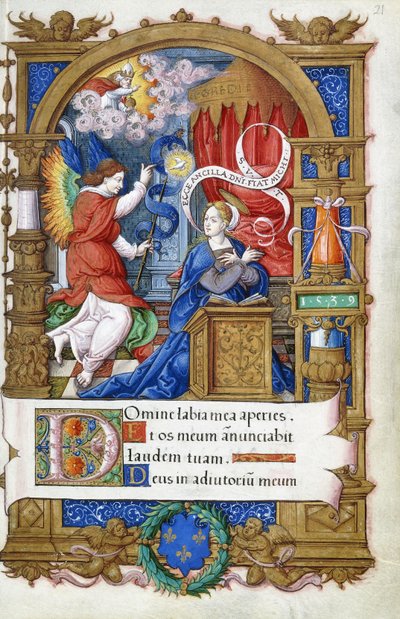 21
ECCE ANCILLA DNI. FIAT MICHI
S. V.
1·5·3·9
Domine labia mea aperies.
Et os meum ãnunciabit
laudem tuam.
Deus in adiutoriũ meum